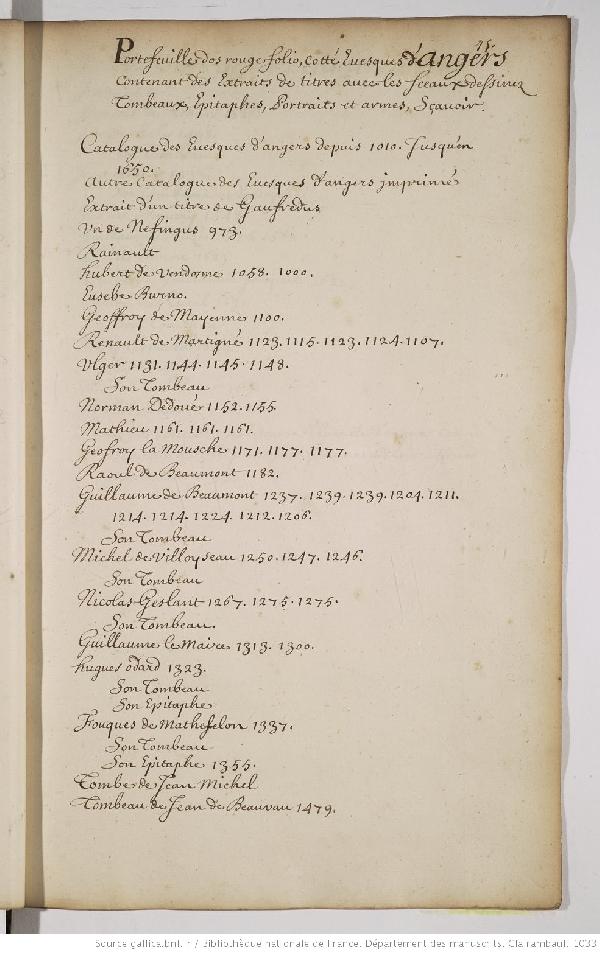 75.
Portefeuille dos rouge folio, cotté Euesques d'angers
Contenant des Extraits de titres auec les sceaux dessinez
Tombeaux, Epitaphes, Portraits et armes, Sçauoir.
Catalogue des Euesques d'angers depuis 1010. Jusqu'en
1650.
Autre Catalogue des Euesques d'angers jmprimé
Extrait d'un titre de Gaufredus
Vn de Nefingus 973.
Rainault
hubert de Vendome 1058. 1000.
Eusebe Burno.
Geoffroy de Mayenne 1100.
Renault de Martigné 1123. 1115. 1123. 1124. 1107.
Vlger 1131. 1144. 1145. 1148.
Son Tombeau
Norman Dedoüer 1152. 1155.
Mathieu 1161. 1161. 1161.
Geofroy la Mousche 1171. 1177. 1177.
Raoul de Beaumont 1182.
Guillaume de Beaumont 1237. 1239. 1239. 1204. 1211.
1214. 1214. 1224. 1212. 1206.
Son Tombeau
Michel de Villoyseau 1250. 1247. 1246.
Son Tombeau
Nicolas Geslant 1267. 1275. 1275.
Son Tombeau.
Guillaume le Maire 1313. 1300.
hugues odard 1323.
Son Tombeau
Son Epitaphe
Fouques de Mathefelon 1337.
Son Tombeau
Son Epitaphe 1355.
Tombe de Jean Michel
Tombeau de Jean de Beauvau 1479.
Source gallica.bnf.fr / Bibliothèque nationale de France. Département des manuscrits. Clairambault 1033